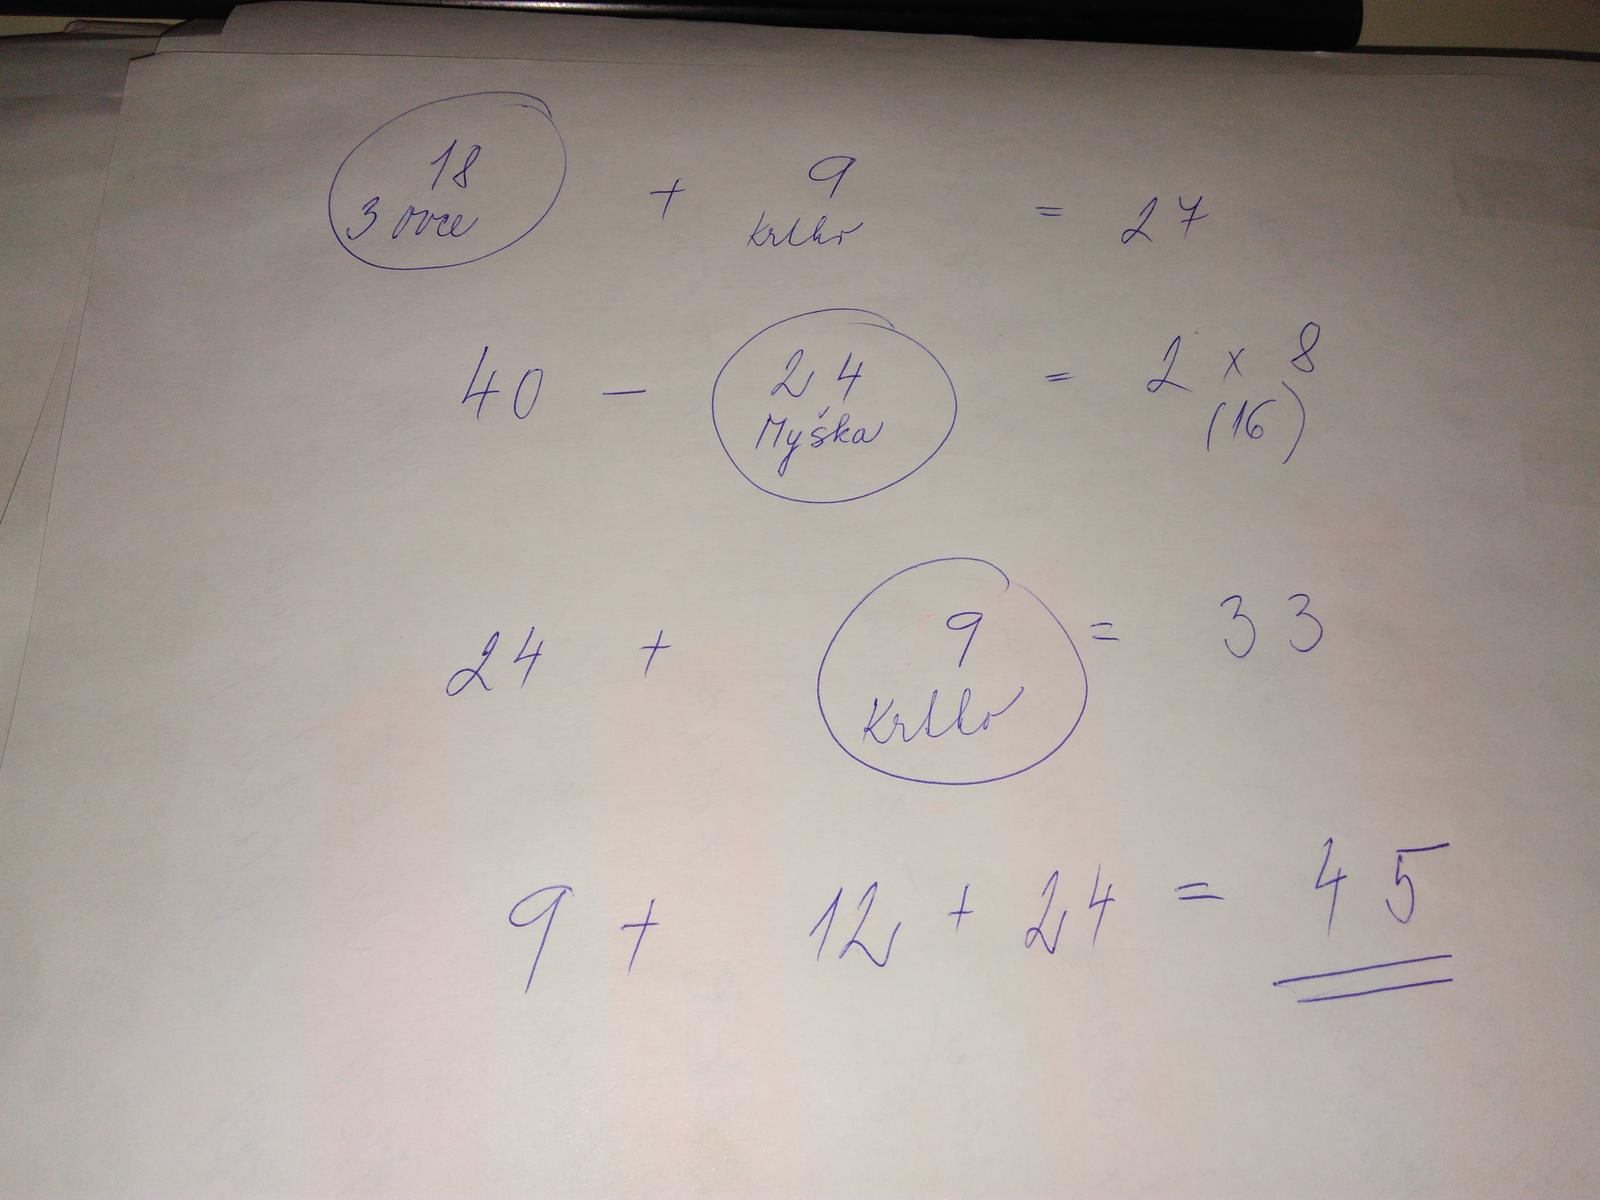 18 + 9 = 27
3 ovce Krtko
40 - 24 = 2 x 8
Myška (16)
24 + 9 = 33
Krtko
9 + 12 + 24 = 45